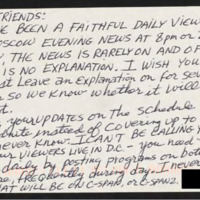 FRIENDS:
E BEEN A FAITHFUL DAILY VIEW
SCOW EVENING NEWS AT 8pm OR
, THE NEWS IS RARELY ON AND OF
IS NO EXPLANATION. I WISH YOU
ST LEAVE AN EXPLANATION ON FOR SE
SO WE KNOW WHETHER IT WILL
T.
YOU UPDATES ON THE SCHEDULE
INSTEAD OF COVERING UP TO
NEVER KNOW. I CAN'T BE CALLING
UR VIEWERS LIVE IN D.C - YOU NEED
DAILY BY POSTING PROGRAMS ON BOT
FREQUENTLY DURING DAY. I NEVER
AT WILL BE ON C-SPAN, OR C-SPAN2.